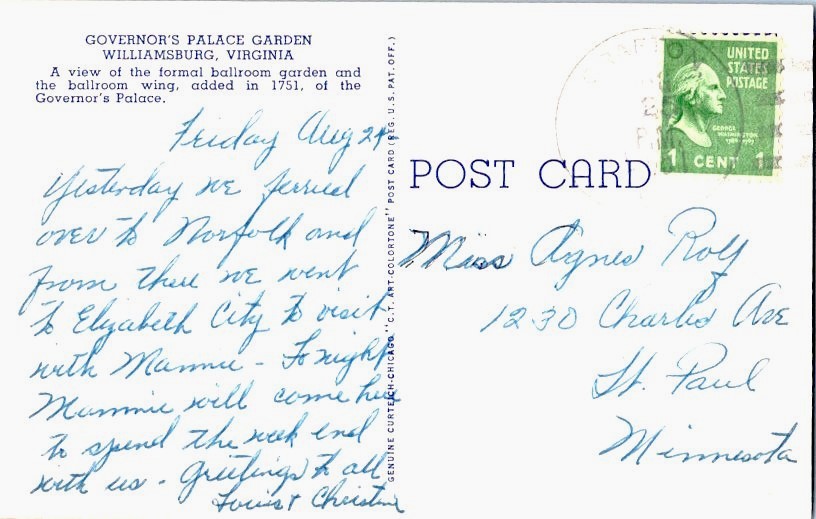 GOVERNOR'S PALACE GARDEN
WILLIAMSBURG, VIRGINIA
A view of the formal ballroom garden and
the ballroom wing, added in 1751, of the
Governor's Palace.
Friday Aug 24
Yesterday we ferried
over to Norfolk and
from there we went
to Elizabeth City to visit
with Mannie - Tonight
Mannie will come here
to spend the week end
with us - Greetings to all
Louis & Christine
GENUINE CURTEICH-CHICAGO "C.T. ART-COLORTONE" POST CARD (REG. U.S. PAT. OFF.)
POST CARD
GRAFTON
P.M.
UNITED
STATES
POSTAGE
GEORGE
WASHINGTON
1789-1797
1 CENT 1
Miss Agnes Rolf
1230 Charles Ave
St. Paul
Minnesota